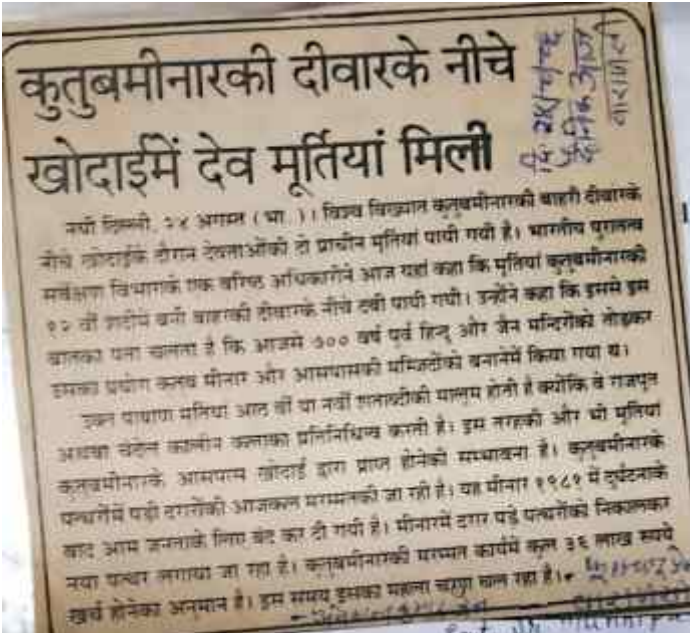 कुतुबमीनारकी दीवारके नीचे
खोदाईमें देव मूर्तियां मिली
दैनिक आज
वाराणसी
नयी दिल्ली, २४ अगस्त (भा.)। विश्व विख्यात कुतुबमीनारकी बाहरी दीवारके
नीचे खोदाईके दौरान देवताओंकी दो प्राचीन मूर्तियां पायी गयी है। भारतीय पुरातत्व
सर्वेक्षण विभागके एक वरिष्ठ अधिकारीने आज यहां कहा कि मूर्तियां कुतुबमीनारकी
१२ वीं शदीमे बनी बाहरकी दीवारके नीचे दबी पायी गयी। उन्होंने कहा कि इससे इस
बातका पता चलता है कि आजसे ७०० वर्ष पूर्व हिन्दू और जैन मन्दिरोंको तोड़कर
इसका प्रयोग कुतब मीनार और आसपासकी मस्जिदोंको बनानेमें किया गया थ।
उक्त पाषाण मूर्तियां आठ वीं या नवीं शताब्दीकी मालूम होती है क्योंकि वे राजपूत
अथवा चंदेल कालीन कलाका प्रतिनिधित्व करती है। इस तरहकी और भी मूर्तियां
कुतुबमीनारके आसपास खोदाई द्वारा प्राप्त होनेकी सम्भावना है। कुतुबमीनारके
पत्थरोंमें पड़ी दरारोंकी आजकल मरम्मतकी जा रही है। यह मीनार १९८१ में दुर्घटनाके
बाद आम जनताके लिए बंद कर दी गयी है। मीनारमें दरार पड़े पत्थरोंको निकालकर
नया पत्थर लगाया जा रहा है। कुतुबमीनारकी मरम्मत कार्यमें कुल ३६ लाख रूपये
खर्च होनेका अनुमान है। इस समय इसका पहला चरण चल रहा है।